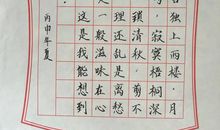 言独上西楼，月
，寂寞梧桐深
锁清秋，剪不
理还乱是离愁
一般滋味在心
这是我能想到
丙申年夏